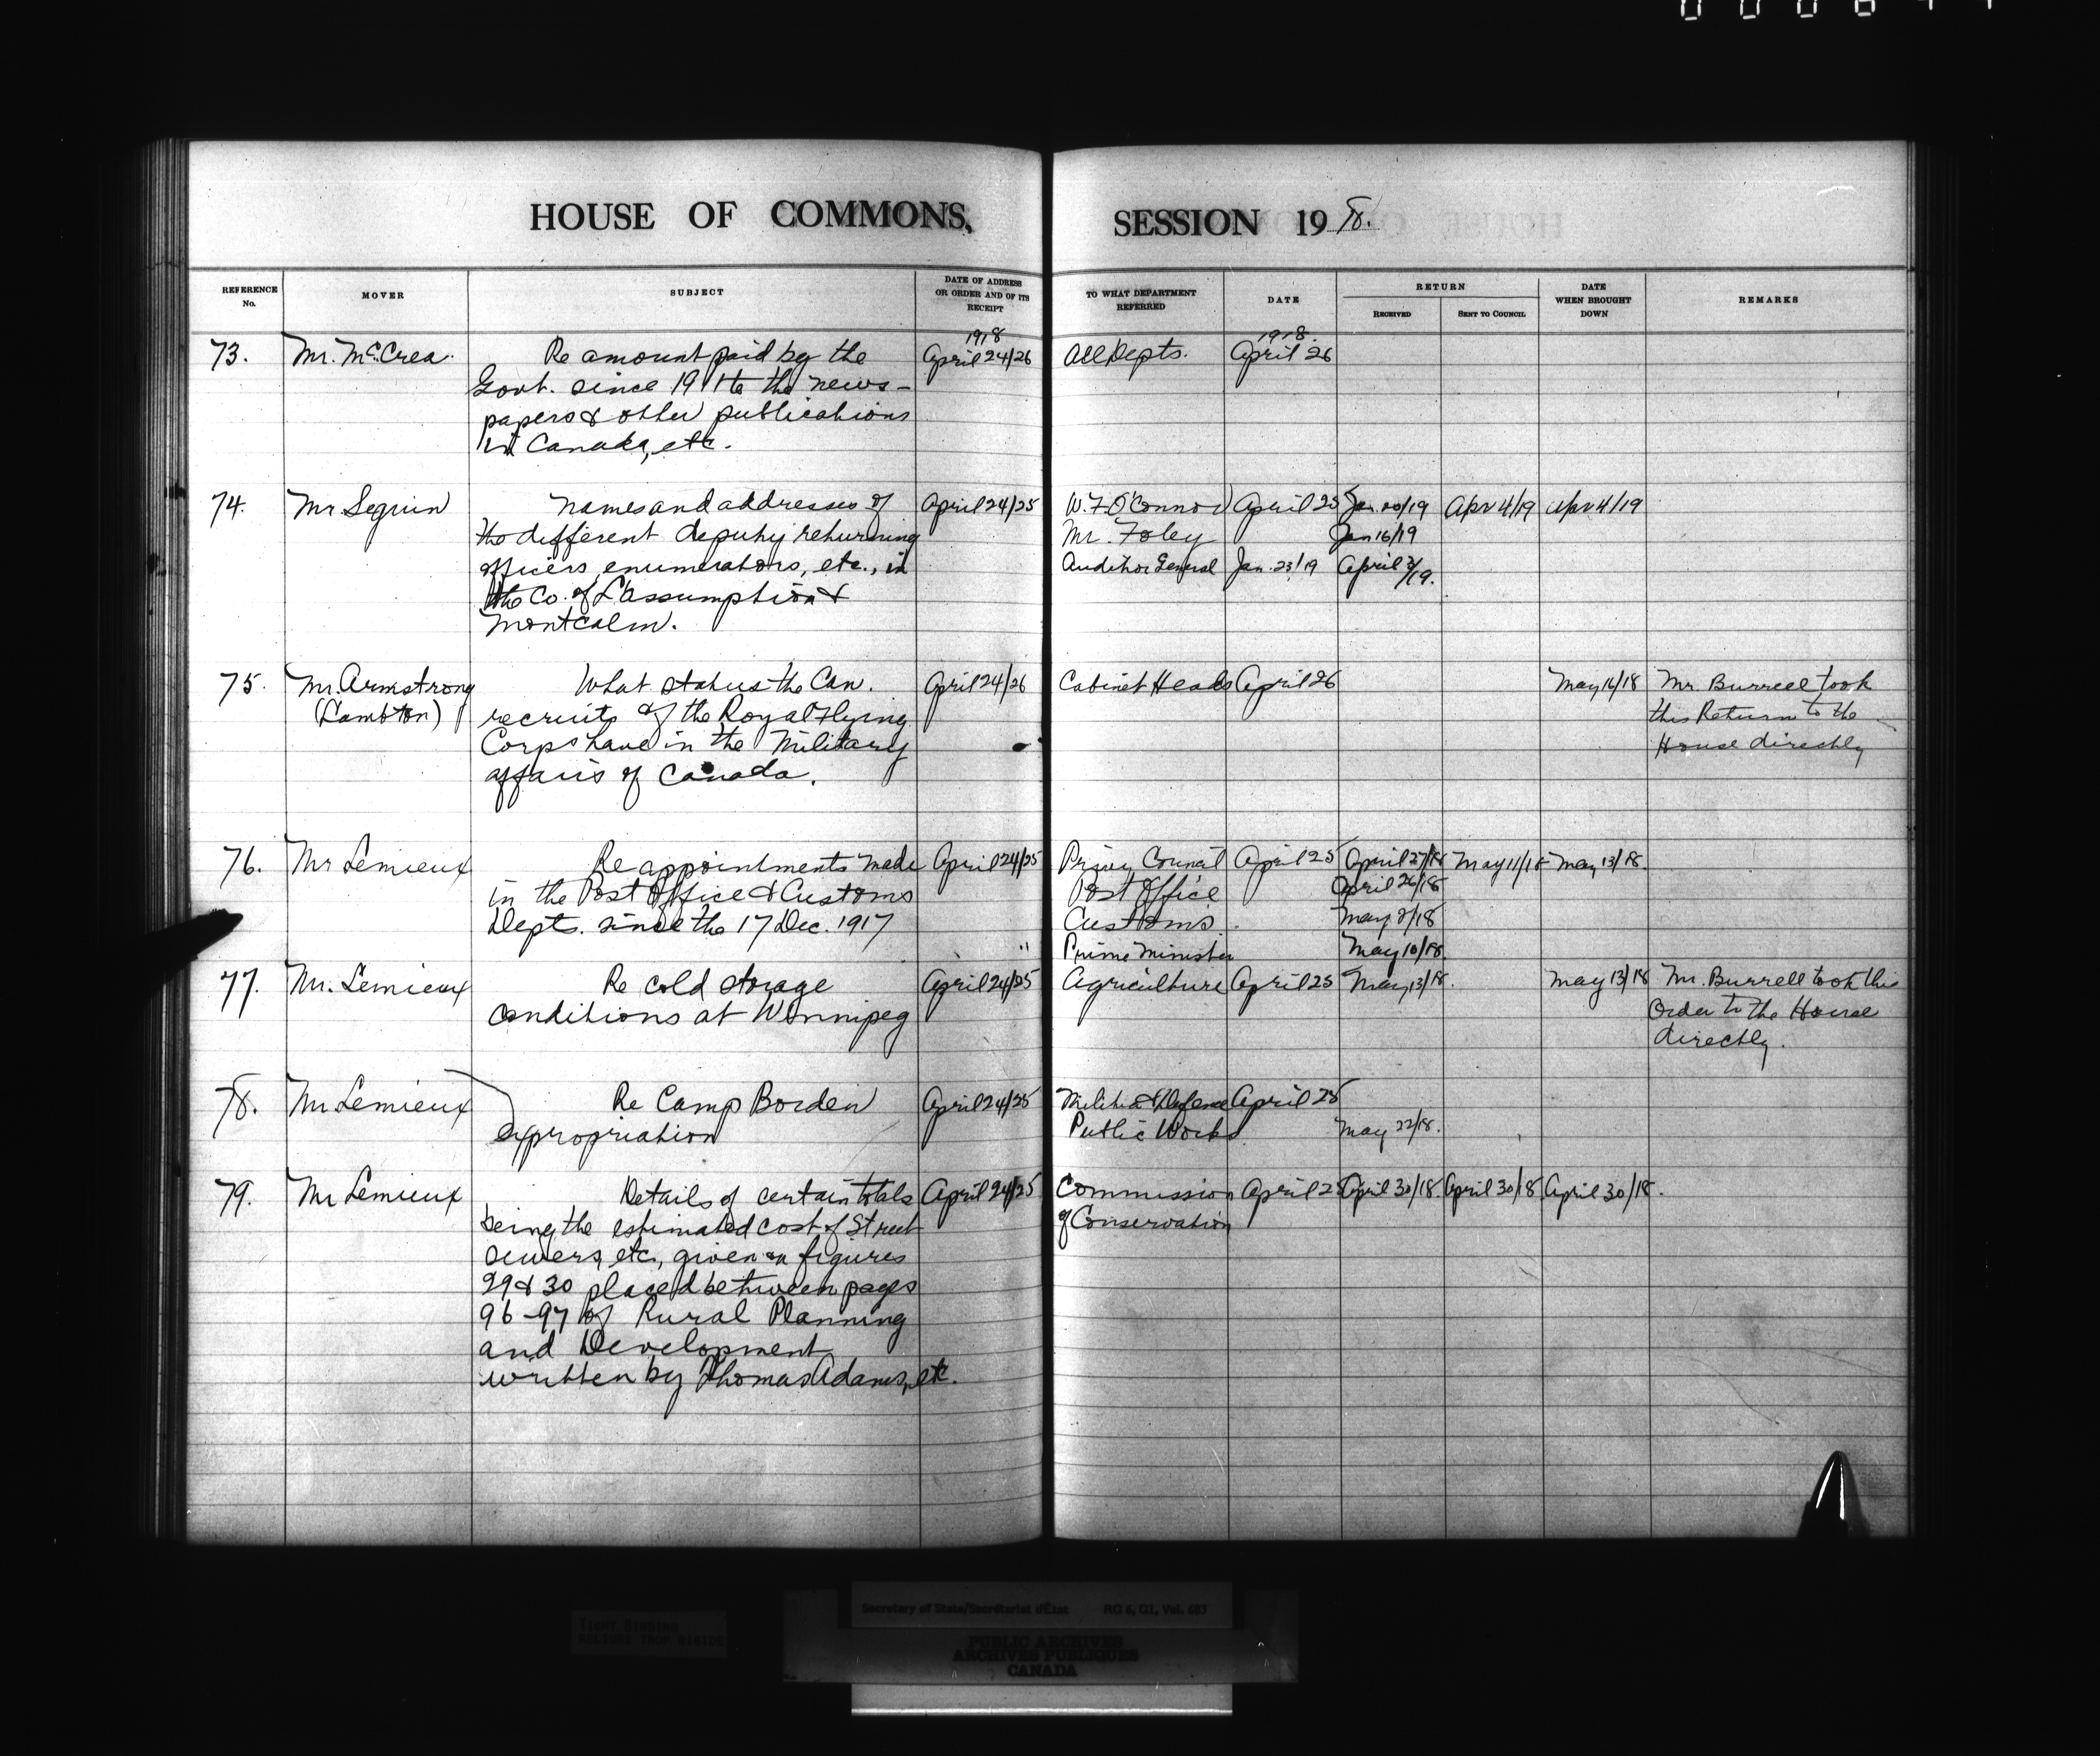 HOUSE OF COMMONS, SESSION 1918.
REFERENCE No. MOVER SUBJECT DATE OF ADDRESS OR ORDER AND OF ITS RECEIPT TO WHAT DEPARTMENT REFERRED DATE RETURN RECEIVED SENT TO COUNCIL DATE WHEN BROUGHT DOWN REMARKS
1918 1918.
73. Mr. McCrea. Re amount paid by the April 24/26 All Depts. April 26
Govt. since 1911 to the news-
papers & other publications
in Canada, etc.
74. Mr Seguin Names and addresses of April 24/25 W.F. O'Connor April 25 Jan. 20/19 Apr 4/19 Apr 4/19
the different deputy returning Mr. Foley Jan 16/19
officers, enumerators, etc., in Auditor General Jan. 23/19 April 3/19.
the Co. of L'assumption &
Montcalm.
75. Mr. Armstrong What status the Can. April 24/26 Cabinet Heads April 26 May 16/18 Mr. Burrell took
(Lambton) recruits of the Royal Flying this Return to the
Corps have in the Military House directly
affairs of Canada.
76. Mr Lemieux Re appointments made April 24/25 Privy Council April 25 April 27/18 May 11/18 May 13/18.
in the Post Office & Customs Post Office April 26/18
Depts. since the 17 Dec. 1917 Customs. May 2/18
" Prime Minister May 10/18.
77. Mr. Lemieux Re cold storage April 24/25 Agriculture April 25 May 13/18. May 13/18 Mr. Burrell took this
conditions at Winnipeg Order to the House
directly.
78. Mr Lemieux Re Camp Borden April 24/25 Militia & Defence April 25
expropriation Public Works May 22/18.
79. Mr Lemieux Details of certain totals April 24/25 Commission April 25 April 30/18. April 30/18 April 30/18.
being the estimated cost of Street of Conservation
sewers, etc., given on figures
29 & 30 placed between pages
96-97 of Rural Planning
and Development
written by Thomas Adams, etc.
TIGHT BINDING
RELIURE TROP RIGIDE
Secretary of State/Secrétariat d'État RG 6, G1, Vol. 685
PUBLIC ARCHIVES
ARCHIVES PUBLIQUES
CANADA